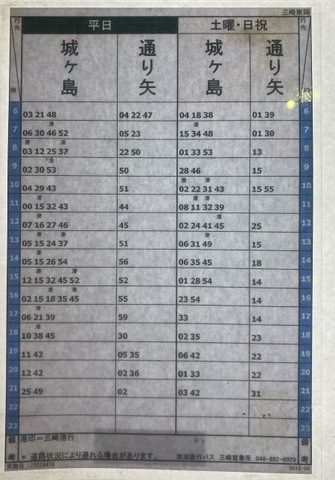 三崎東岡
行先 平日 土曜・日祝 行先
時 城ヶ島 通り矢 城ヶ島 通り矢 時
6 03 21 48 04 22 47 04 18 38 01 39 6
7 06 30 46 52 05 23 15 34 48 01 30 7
8 03 12 25 37 22 50 01 33 53 13 8
9 02 30 53 50 28 46 15 9
10 04 29 43 51 02 22 31 43 15 55 10
11 00 15 32 43 44 08 11 32 39 11
12 07 16 27 46 45 02 24 41 45 25 12
13 05 15 24 37 51 06 31 49 15 13
14 05 15 26 54 56 06 35 45 18 14
15 12 15 32 45 52 52 01 28 54 14 15
16 02 15 18 35 45 55 23 54 14 16
17 06 21 39 59 33 14 17
18 10 38 45 30 02 35 23 18
19 11 42 05 35 06 42 22 19
20 12 42 02 36 01 33 22 20
21 25 49 02 03 42 31 21
22 22
23 23
備考 港印=三崎港行 備考
＊道路状況により遅れる場合があります。 京浜急行バス 三崎営業所 046-882-6020